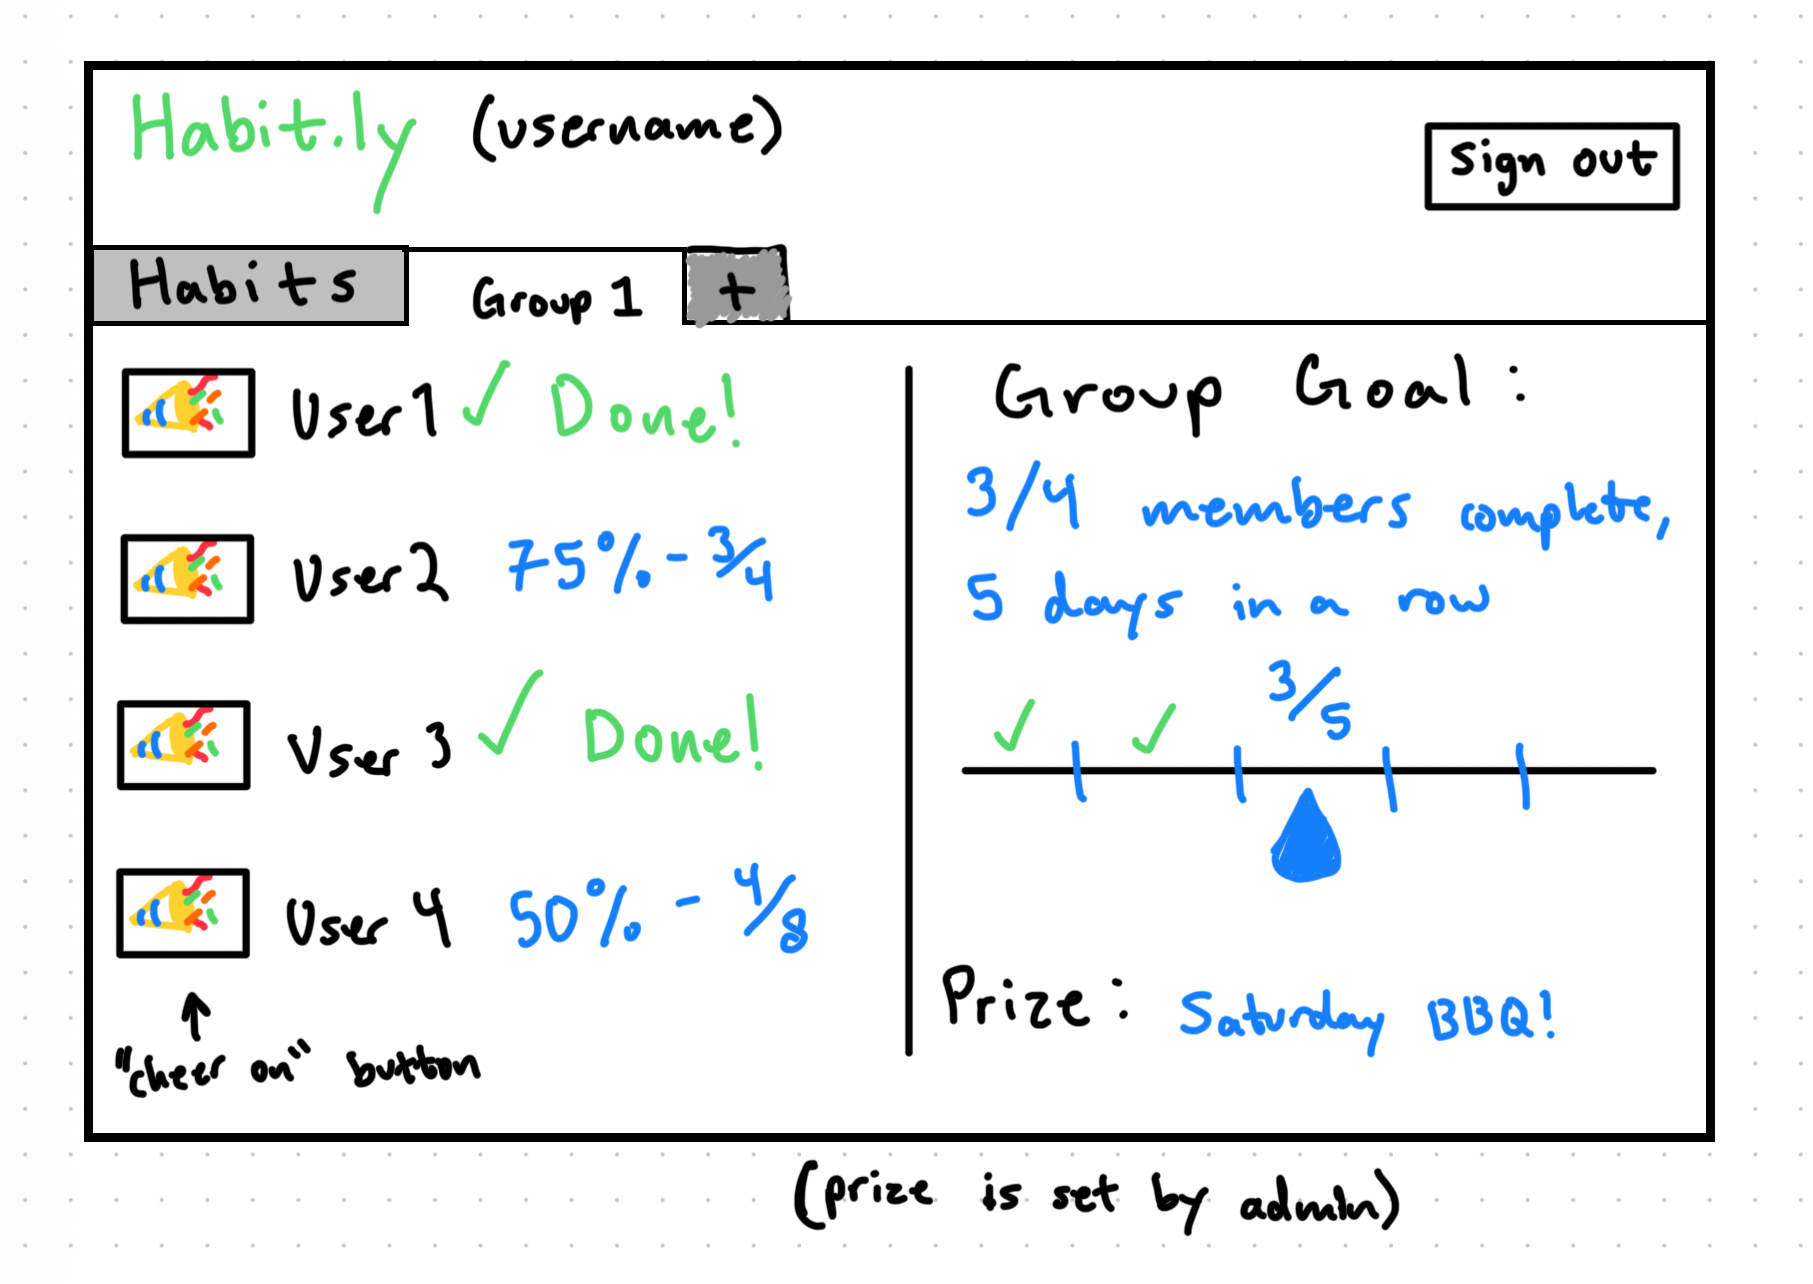 Habit.ly (username)
Sign out
Habits
Group 1
+
User 1 ✓ Done!
User 2 75% - 3/4
User 3 ✓ Done!
User 4 50% - 4/8
"cheer on" button
Group Goal:
3/4 members complete,
5 days in a row
✓ ✓ 3/5
Prize: Saturday BBQ!
(prize is set by admin)